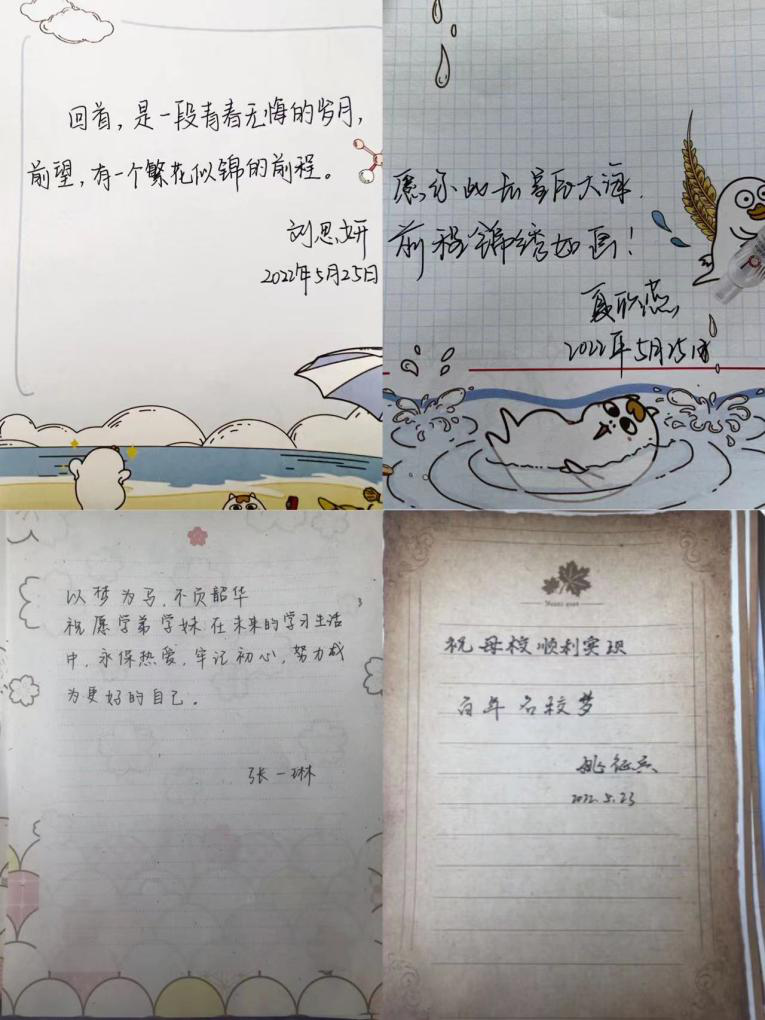 回首，是一段青春无悔的岁月，
前望，有一个繁花似锦的前程。
刘思妍
2022年5月25日
愿你此去星辰大海，
前程锦绣如画！
2022年5月25日
以梦为马，不负韶华
祝愿学弟学妹在未来的学习生活
中，永保热爱，牢记初心，努力成
为更好的自己。
张一琳
祝母校顺利实现
百年名校梦
2022.5.23